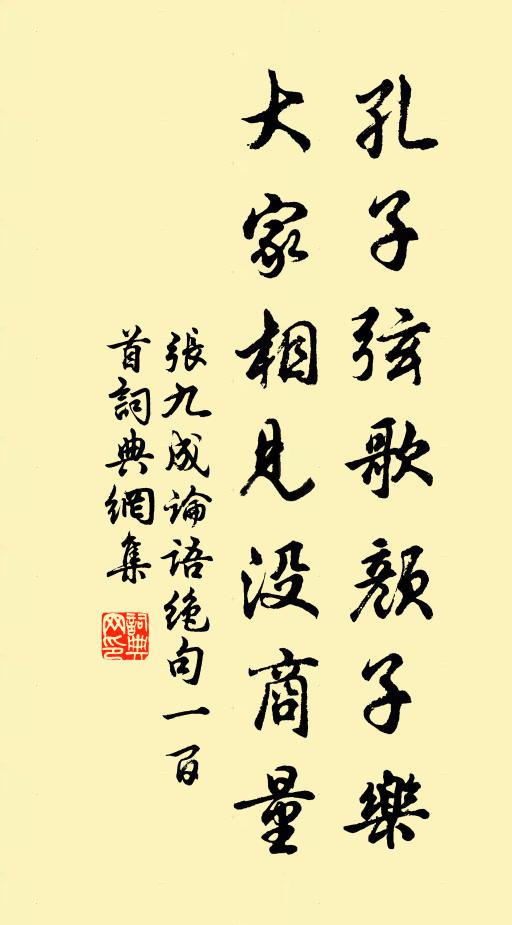 孔子弦歌顔子樂
大家相見没商量
張九成論語絶句一百
首詞典網集
詞典網印